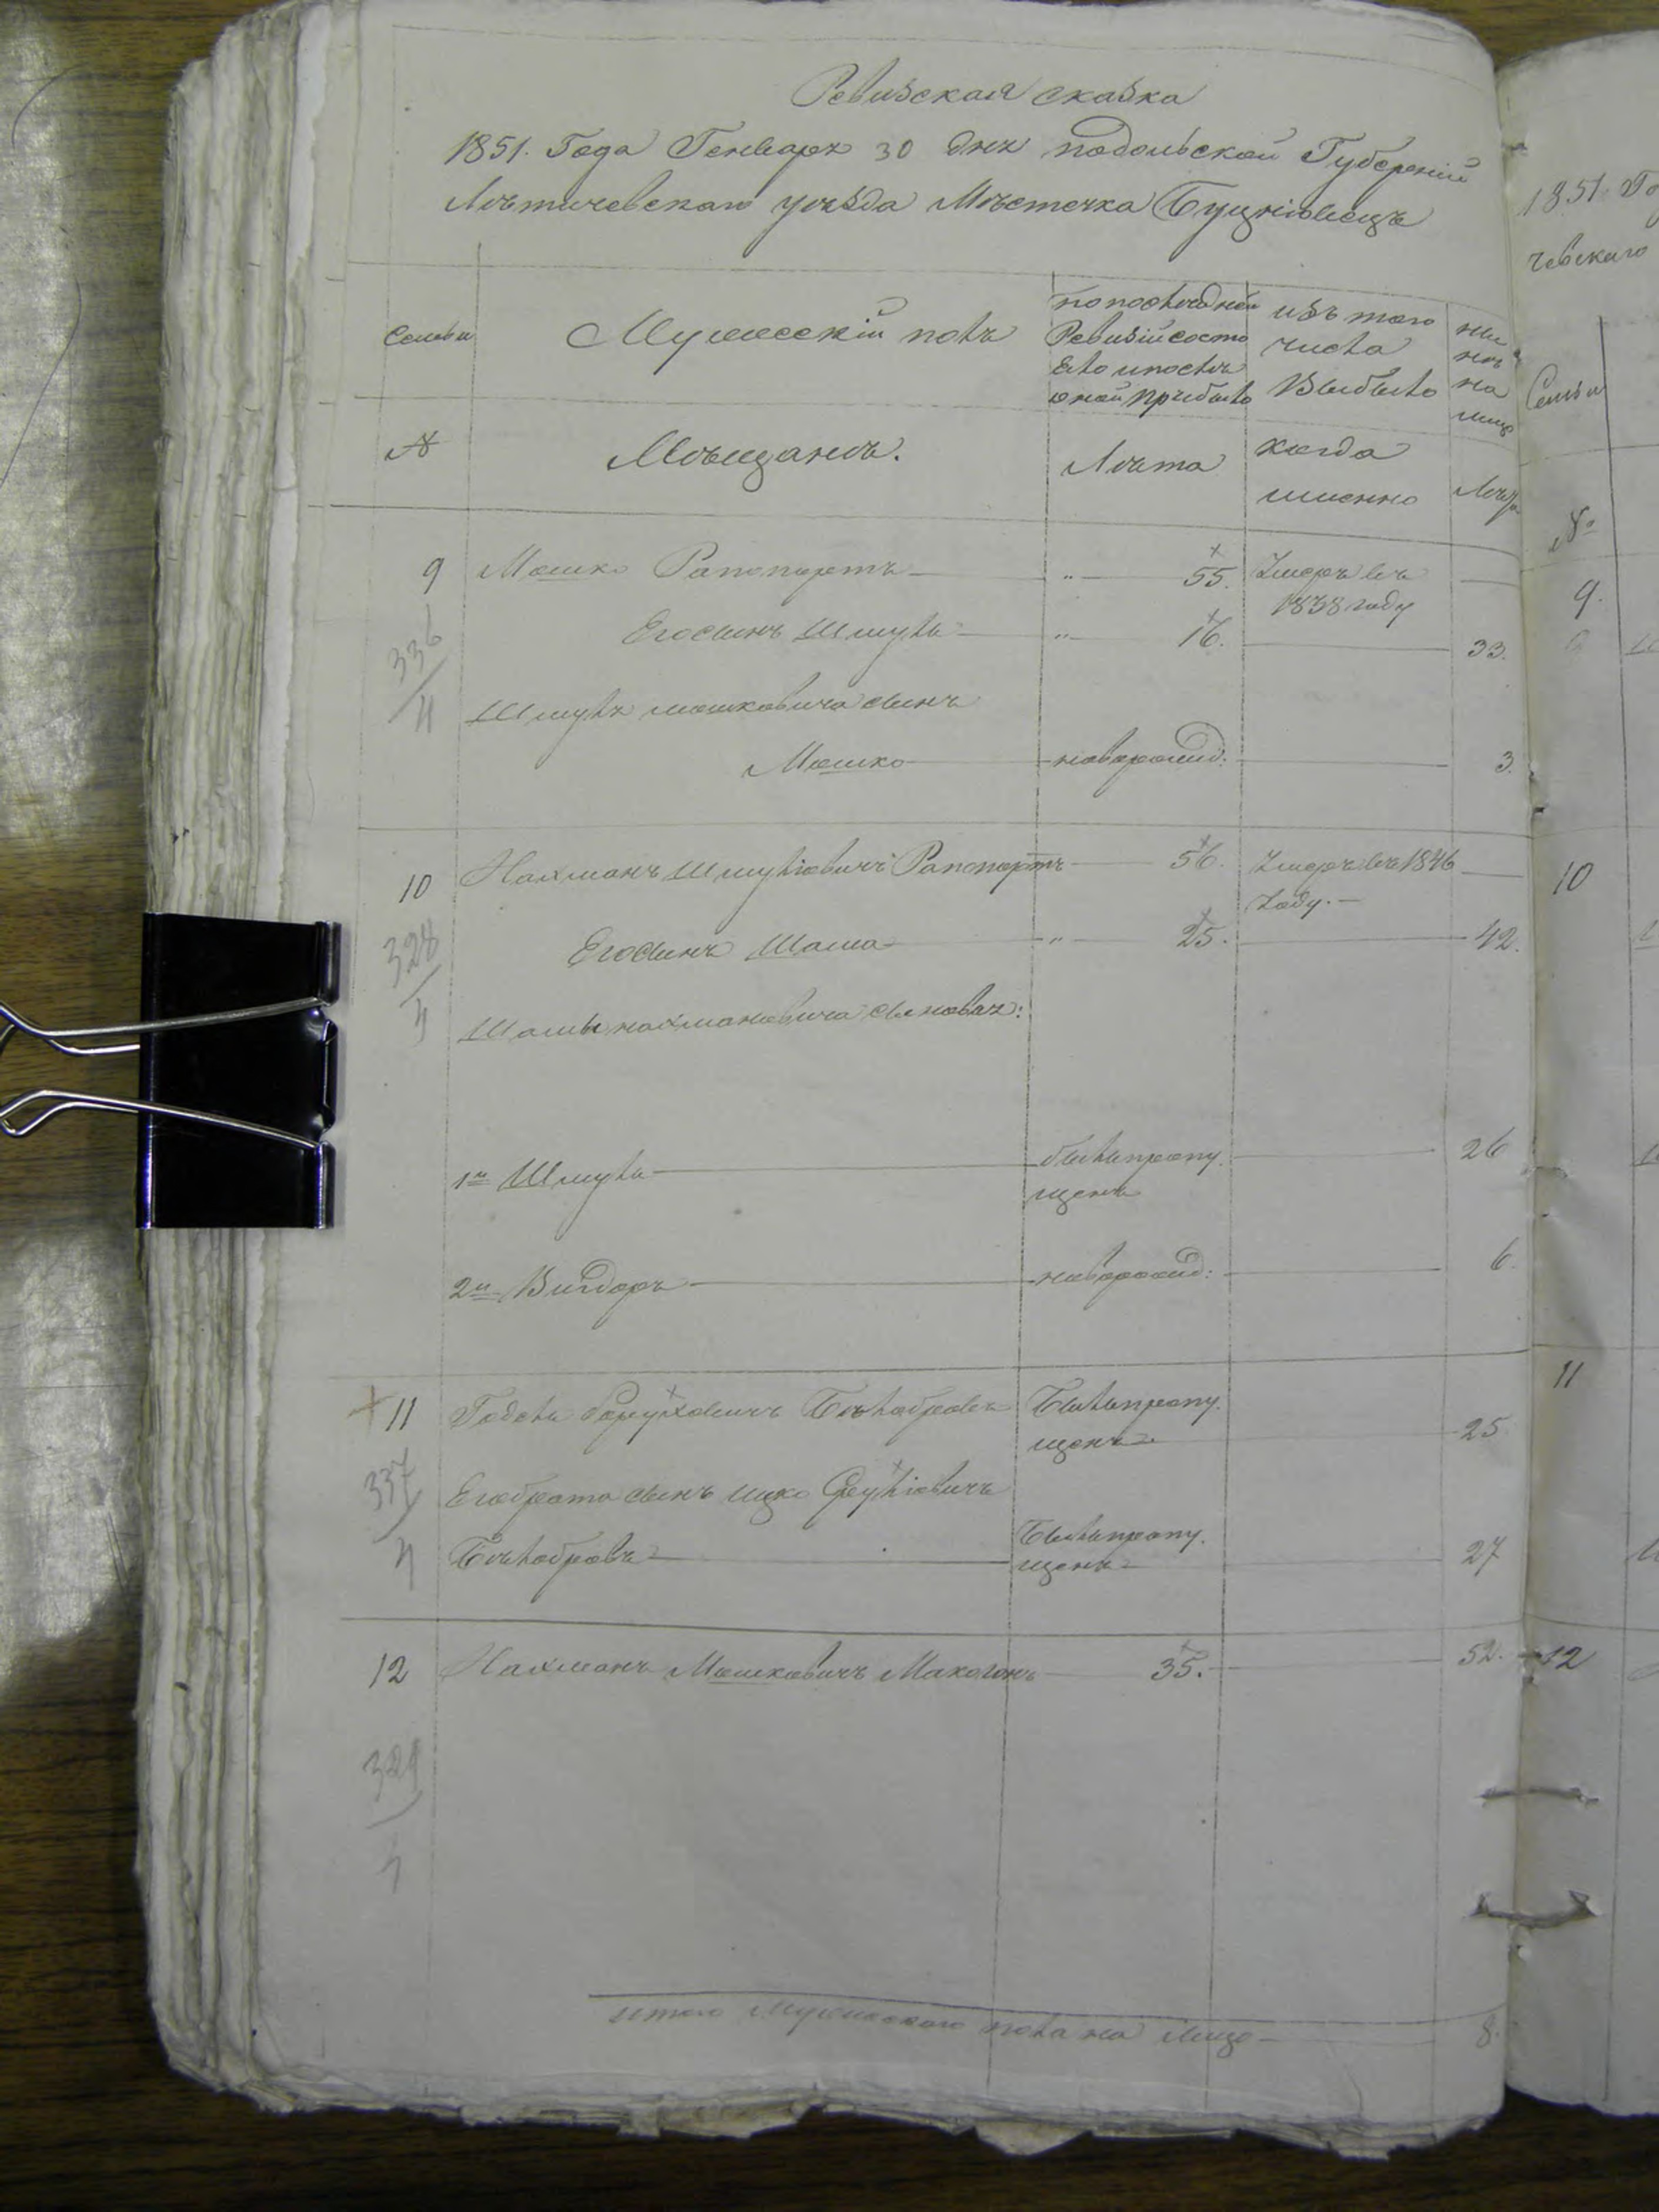 Ревизская сказка
1851. Года Генваря 30 дня подольской Губернии
Лѣтичевскаго уѣзда Мѣстечка Буцнiовецъ
Семьи
Мужескiй полъ
по последней
Ревизiи состо
яло и после
оной прибыло
изъ того
числа
Выбыло
ны
нѣ
на
лицо
№
Мѣщанъ.
Лѣта
когда
именно
Лѣта
9 Мошко Рапопортъ " 55. Умеръ въ
1838 году
Его сынъ Шмуль " 16. 33.
336
4
Шмуля мошковича сынъ
Мошко новорожд: 3.
10 Нахманъ Шмулiовичъ Рапопортъ 56. Умеръ въ 1846
Году.
Его сынъ Шама " 25. 42.
328
4
Шамы нахмановича сыновья:
1й Шмуль былъ пропу
щенъ 26
2й Вигдоръ новорожд: 6.
11 Былъ пропу
щенъ 25
337
4
Его брата сынъ ицко
Былъ пропу
щенъ 27
12 Нахманъ Мошковичъ Макогонъ 35. 52.
329
итого Мужескаго пола на лицо 8.
1851. Го
чевскаго
Семьи
№
9.
10
11
12